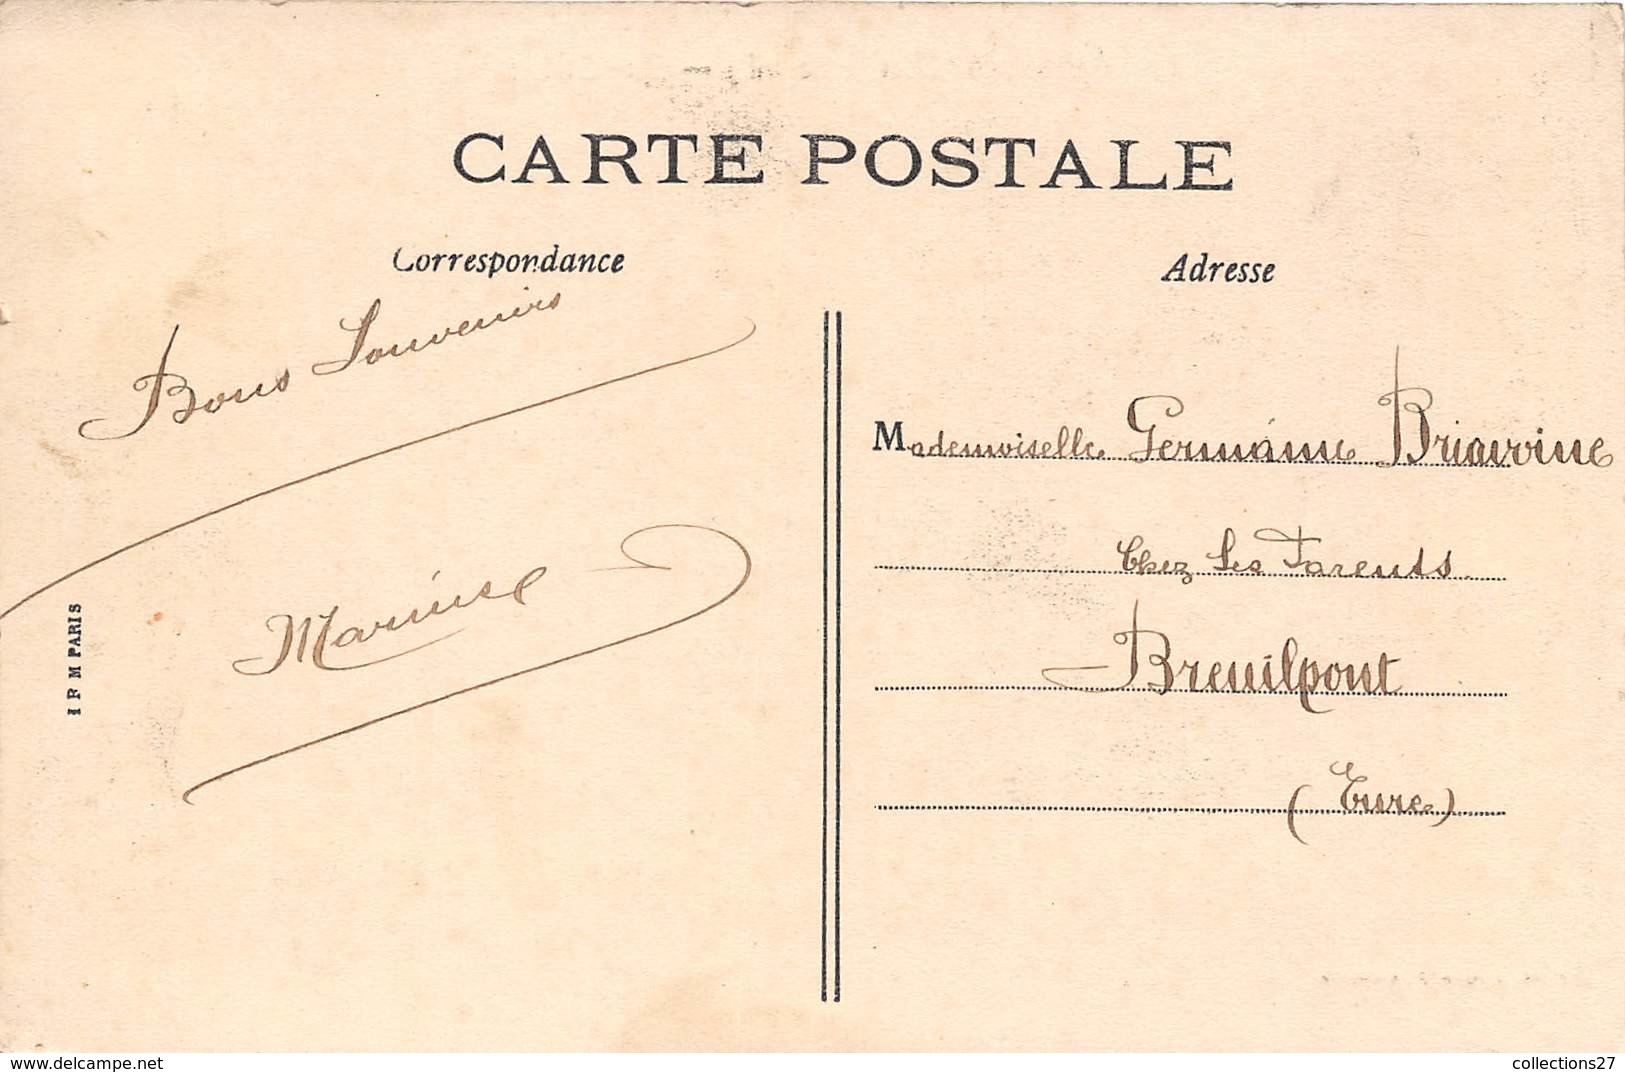 CARTE POSTALE
Correspondance
Bons Souvenirs
Marinise
I P M PARIS
Adresse
Mademoiselle Germaine Briavoine
Chez Ses Parents
Breuilpont
(Eure)
www.delcampe.net
collections27